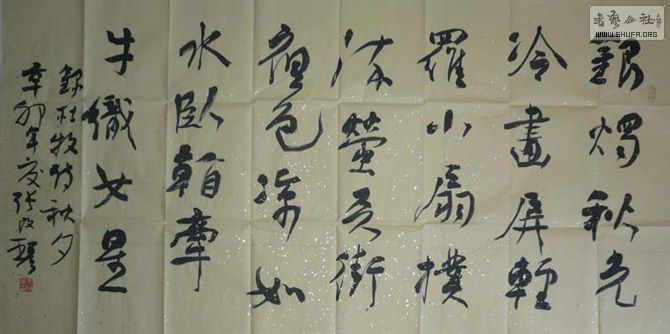 銀燭秋光
冷畫屏輕
羅小扇撲
流螢天街
夜色涼如
水臥看牽
牛織女星
錄杜牧詩秋夕
辛卯年夏張改
書藝公社
WWW.SHUFA.ORG